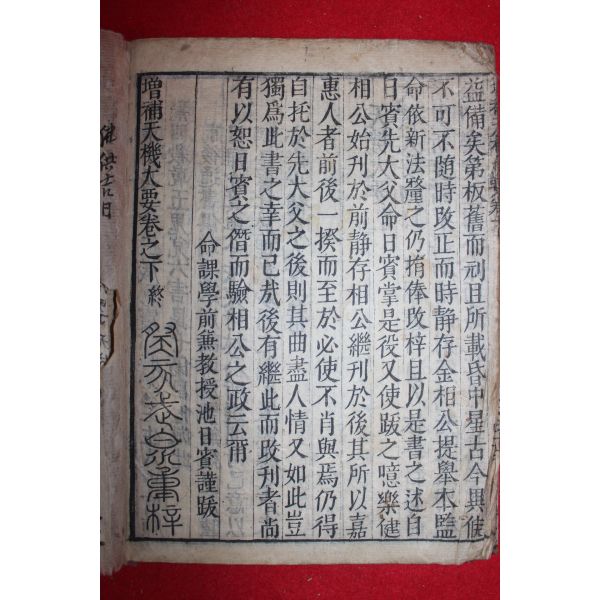 益備矣第板舊而刓且所載昏中星古今異候
不可不随時改正而時静存金相公提舉本監
命依新法釐之仍捐俸改梓且以是書之述自
日賓先大父命日賓掌是役又使跋之噫樂健
相公始刊於前静存相公繼刊於後其所以嘉
惠人者前後一揆而至於必使不肖與焉仍得
自托於先大父之後則其曲盡人情又如此豈
獨爲此書之幸而已㢤後有繼此而改刊者尚
有以恕日賓之僭而驗相公之政云甭
命課學前兼教授池日賓謹跋
增補天機大要卷之下終
重梓